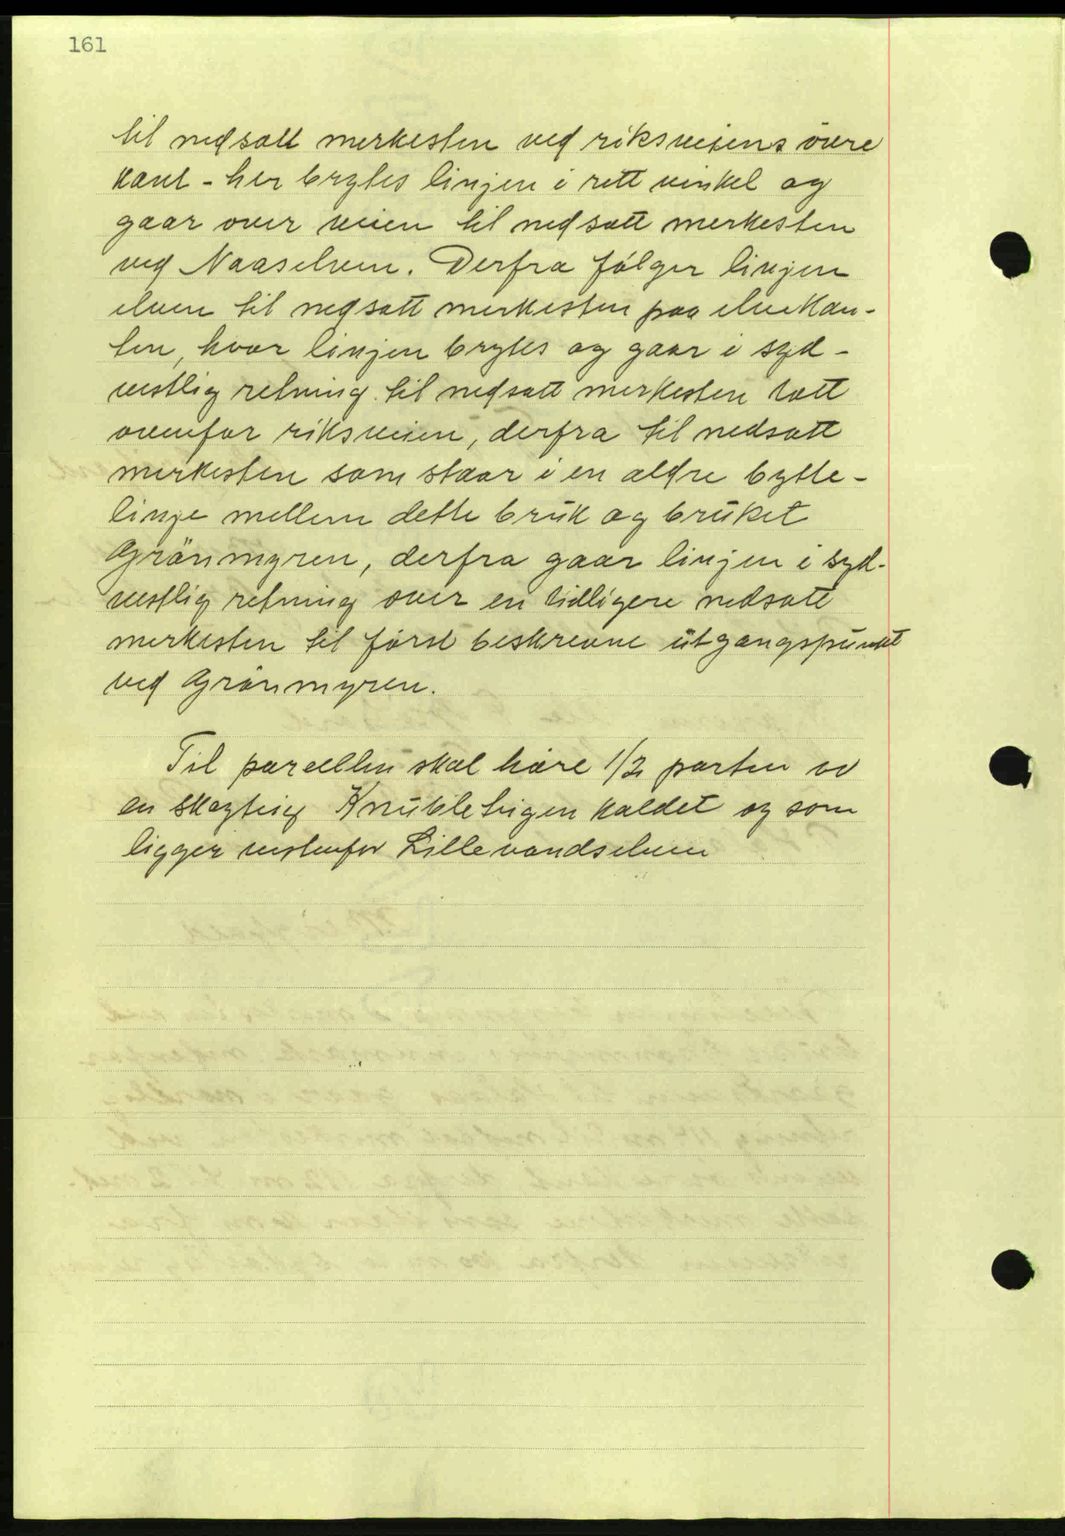 161
til nedsatt merkesten ved riksveiens övre
kant - her brytes linjen i rett vinkel og
gaar over veien til nedsatt merkesten
ved Naaselven. Derfra fölger linjen
elven til nedsatt merkesten paa elvekan-
ten, hvor linjen brytes og gaar i syd-
vestlig retning til nedsatt merkesten tætt
ovenfor riksveien, derfra til nedsatt
merkesten som staar i en ældre bytte-
linje mellem dette bruk og bruket
Grönmyren, derfra gaar linjen i syd-
vestlig retning over en tidligere nedsatt
merkesten til först beskrevne utgangspunkt
ved Grönmyren.
Til parcellen skal höre 1/2 parten av
en skogteig Knubleteigen kaldet og som
ligger vestenfor Lillevandselven